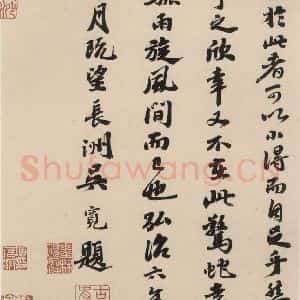 於此者可以小得而自足乎
之欣幸又不在此驚蛇
旋風間而已也弘治六年
月既望長洲吳寬題
Shufawang.CN